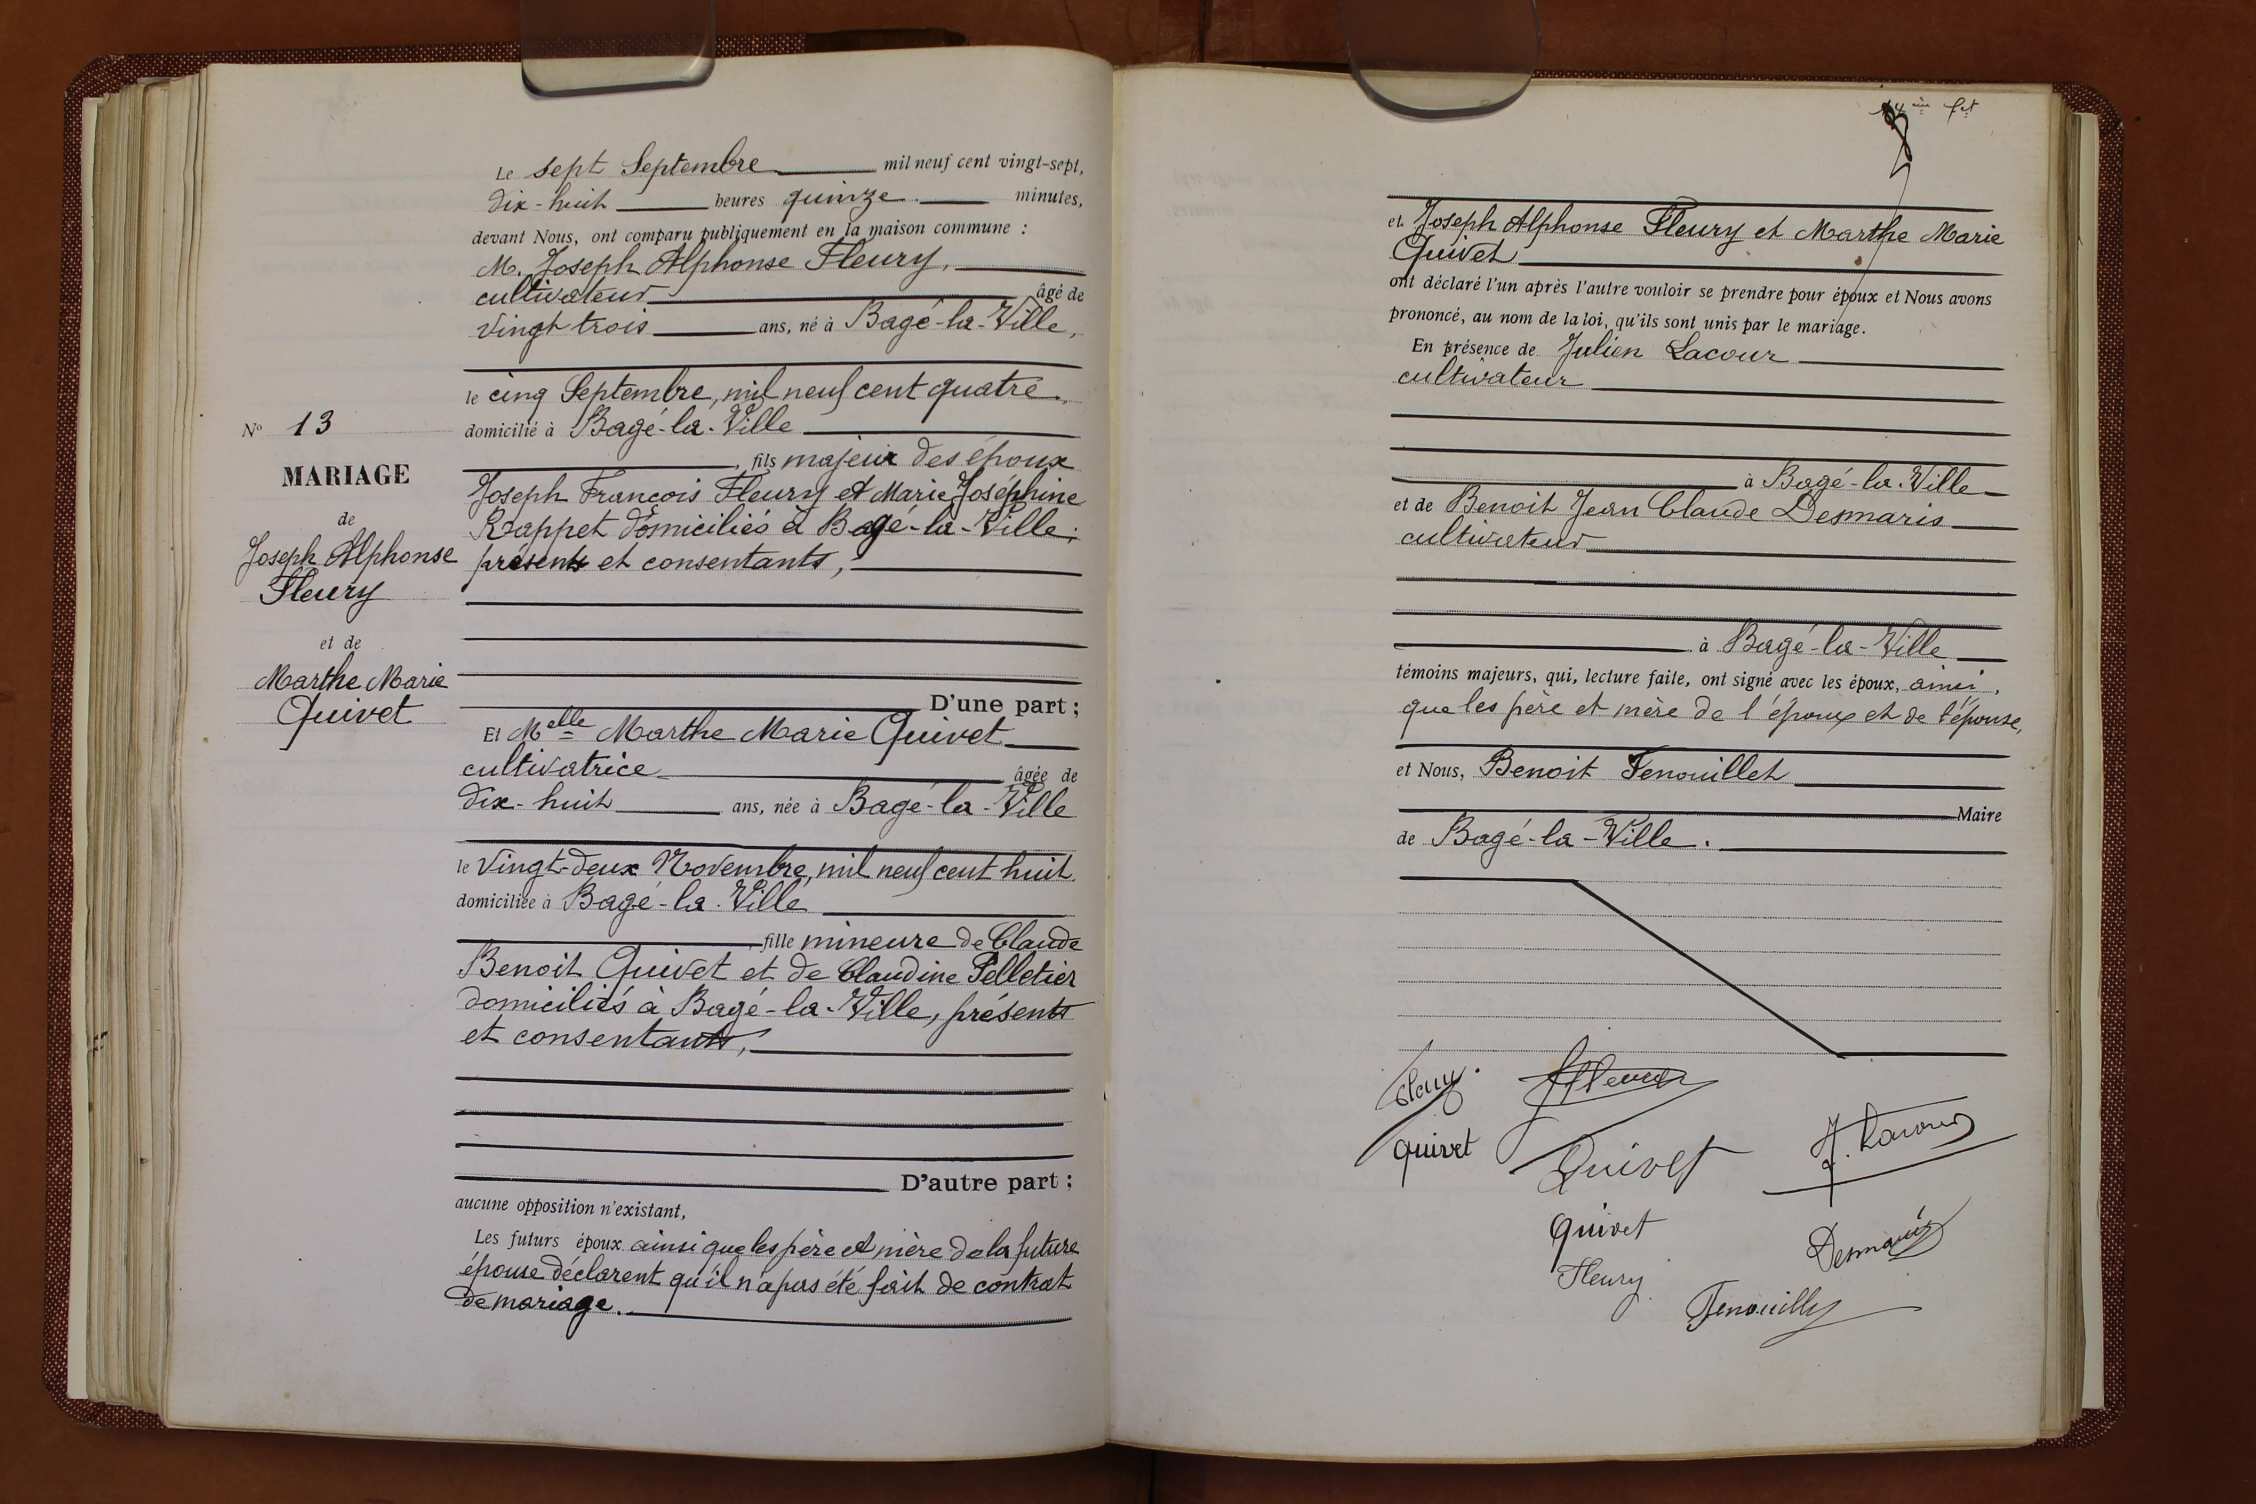 Le sept Septembre mil neuf cent vingt-sept,
dix-huit heures quinze minutes,
devant Nous, ont comparu publiquement en la maison commune :
M. Joseph Alphonse Fleury,
cultivateur âgé de
vingt trois ans, né à Bagé-la-Ville,
le cinq Septembre, mil neuf cent quatre
domicilié à Bagé-la-Ville
, fils majeur des époux
Joseph François Fleury et Marie Joséphine
domiciliés à Bagé-la-Ville,
présents et consentants,
D'une part ;
Nº 13
MARIAGE
de
Joseph Alphonse
Fleury
et de
Marthe Marie
Quivet
Et Melle Marthe Marie Quivet
cultivatrice âgée de
dix-huit ans, née à Bagé-la-Ville
le vingt-deux Novembre, mil neuf cent huit
domiciliée à Bagé-la-Ville
, fille mineure de Claude
Benoit Quivet et de Claudine Pelletier
domiciliés à Bagé-la-Ville, présents
et consentants,
D'autre part ;
aucune opposition n'existant,
Les futurs époux ainsi que les père et mère de la future
épouse déclarent qu'il n'a pas été fait de contrat
de mariage.
et Joseph Alphonse Fleury et Marthe Marie
Quivet
ont déclaré l'un après l'autre vouloir se prendre pour époux et Nous avons
prononcé, au nom de la loi, qu'ils sont unis par le mariage.
En présence de Julien Lacour
cultivateur
à Bagé-la-Ville
et de Benoit Jean Claude Desmaris
cultivateur
à Bagé-la-Ville
témoins majeurs, qui, lecture faite, ont signé avec les époux, ainsi
que les père et mère de l'époux et de l'épouse,
et Nous, Benoit Fenouillet
Maire
de Bagé-la-Ville.
Fleury
Quivet
Quivet
J. Lacour
Quivet
Desmaris
Fleury
Fenouillet